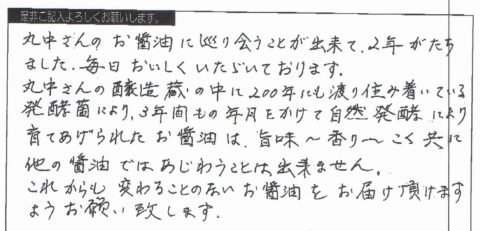 是非ご記入よろしくお願いします。
丸中さんのお醤油に巡り会うことが出来て、2年がたち
ました。毎日おいしくいただいております。
丸中さんの醸造蔵の中に200年にも渡り住み着いている
発酵菌により、3年間もの年月をかけて自然発酵により
育てあげられたお醤油は、旨味〜香り〜こく共に
他の醤油ではあじわうことは出来ません。
これからも変わることのないお醤油をお届け頂けます
ようお願い致します。